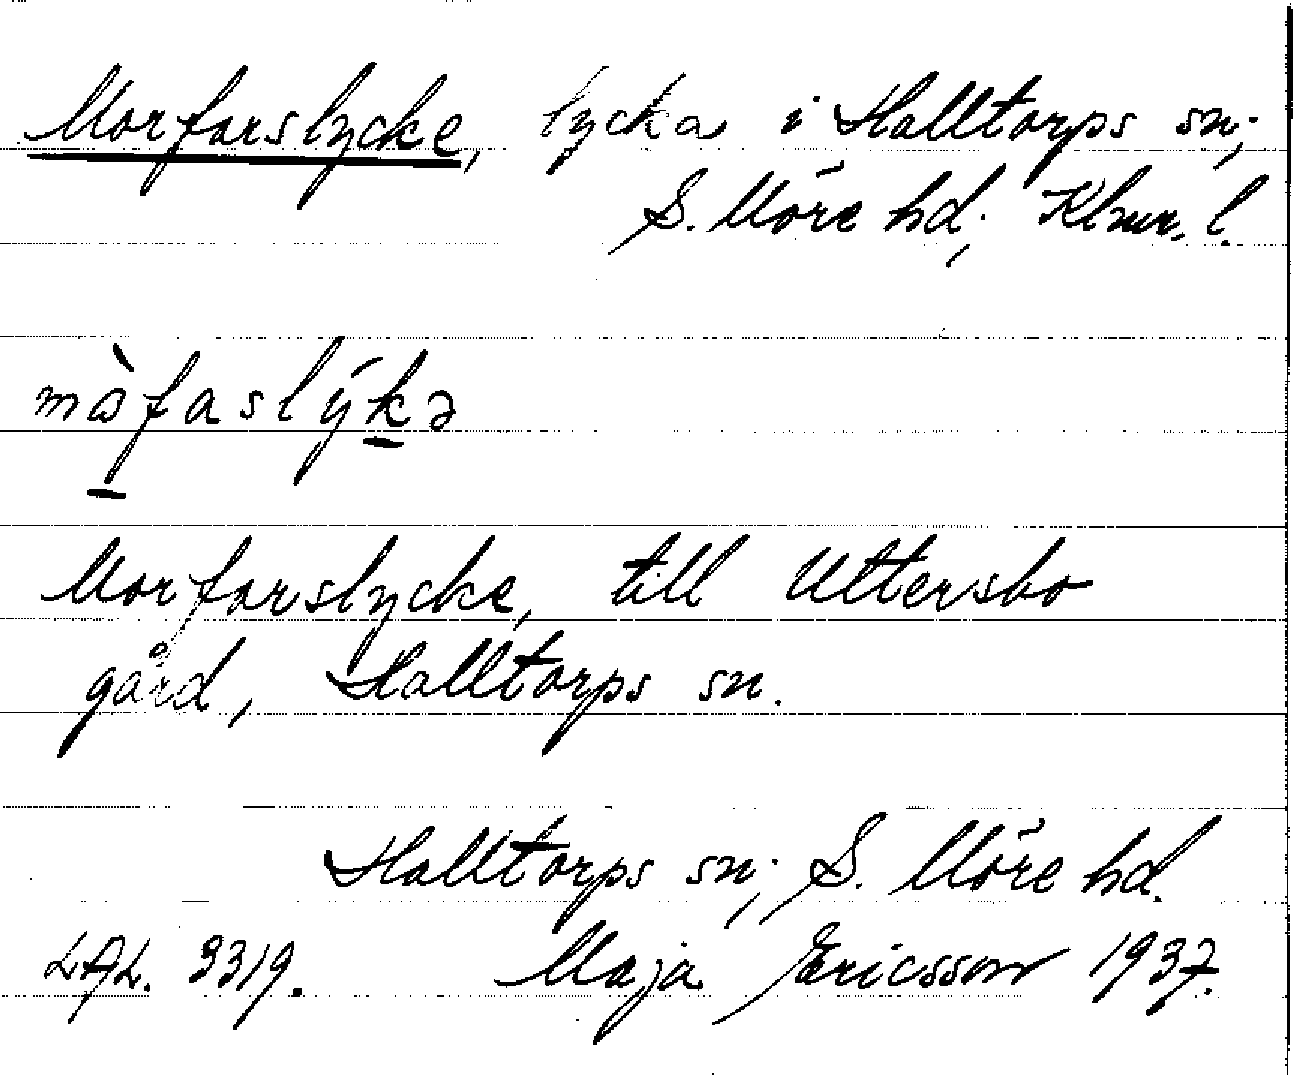 Morfarslycke, lycka i Halltorps sn;
S. Möre hd; Klmr. l.
mòfaslýkə
Morfarslycke, till Uttersbo
gård, Halltorps sn.
Halltorps sn; S. Möre hd.
LAL. 3319. Maja Ericsson 1937.